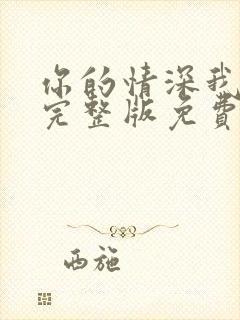 你的情深我
完整版免費
西施